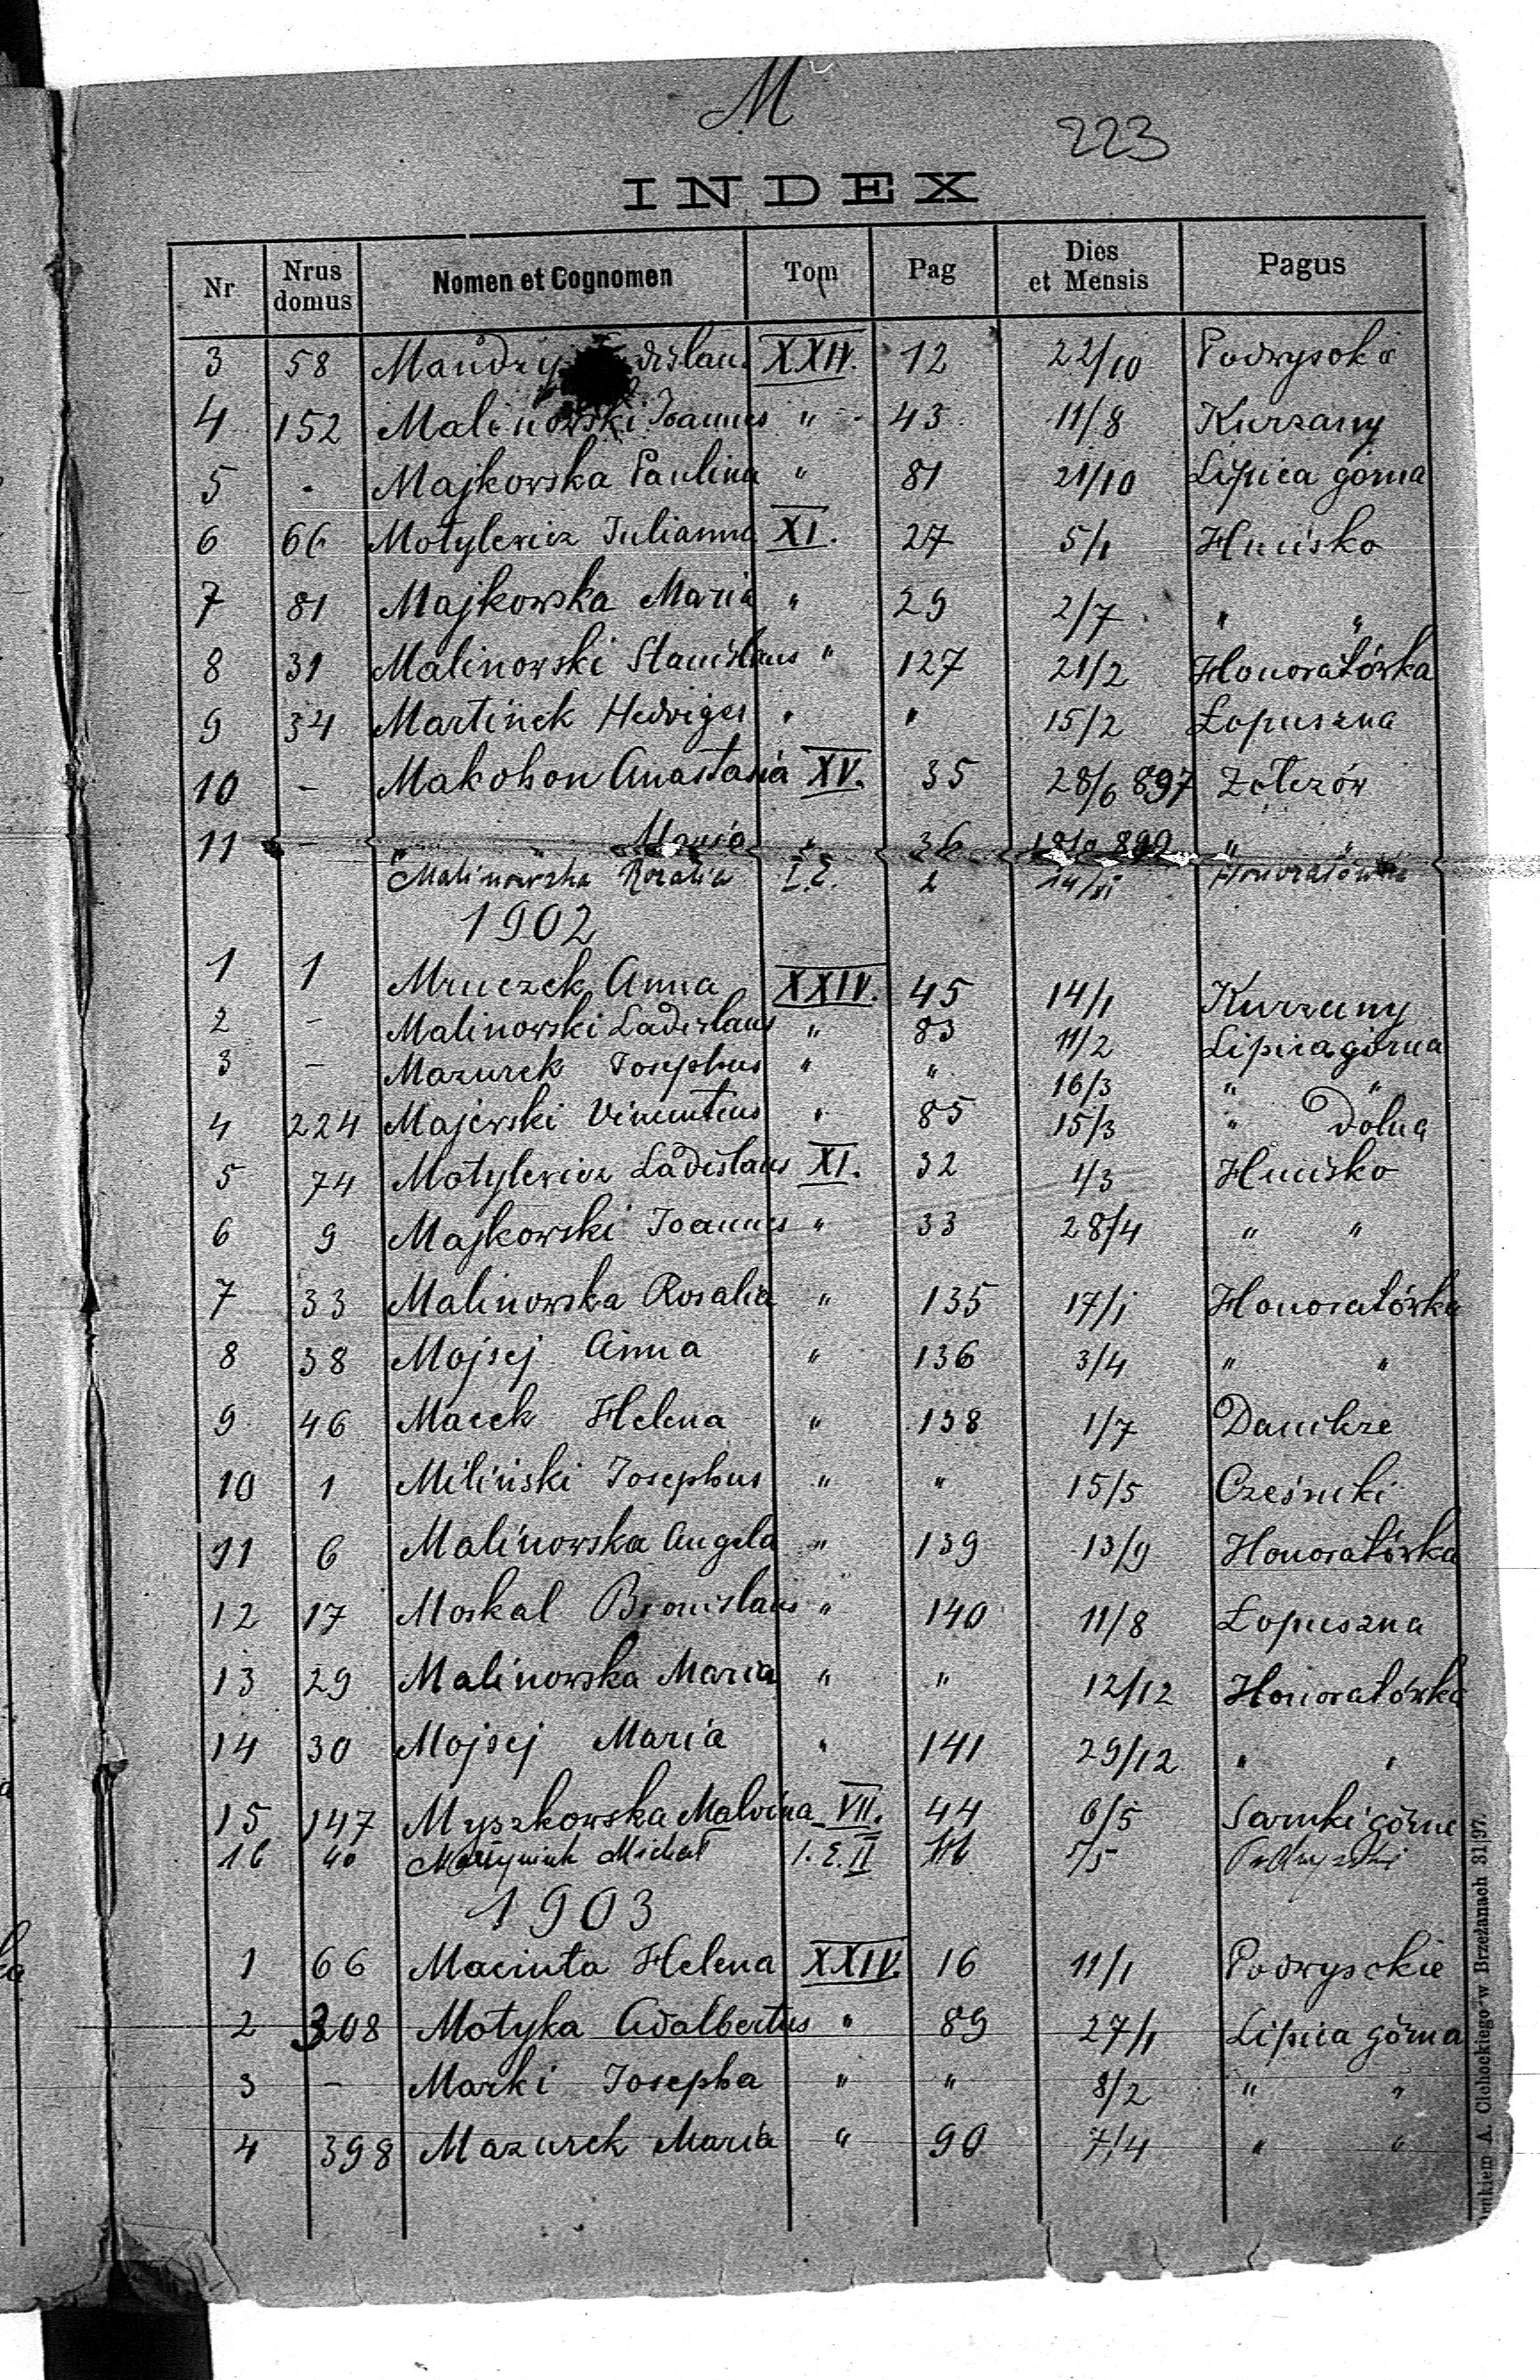 M
223
INDEX
Nr Nrus domus Nomen et Cognomen Tom Pag Dies et Mensis Pagus
3 58 XXIV. 12 22/10 Podwysokie
4 152 Malinowski Joannes " 43 11/8 Kurzany
5 - Majkowska Paulina " 81 21/10 Lipica górna
6 66 Motylewicz Julianna XI. 27 5/1 Hucisko
7 81 Majkowska Maria " 29 2/7 " "
8 31 Malinowski Stanislaus " 127 21/2 Honoratówka
9 34 Martinek Hedviges " " 15/2 Łopuszna
10 - Makohon Anastasia XV. 35 28/6 897 Żołczów
11 - " Maria " 36 899 " "
Malinowska Rozalia I.E. 2 14/XI Honoratówka
1902
1 1 Mruczek Anna XXIV. 45 14/1 Kurzany
2 - Malinowski Ladislaus " 83 11/2 Lipica górna
3 - Mazurek Josephus " " 16/3 " "
4 224 Majewski Vincentius " 85 15/3 " Dolna
5 74 Motylewicz Ladislaus XI. 32 1/3 Hucisko
6 9 Majkowski Joannes " 33 28/4 " "
7 33 Malinowska Rosalia " 135 17/1 Honoratówka
8 38 Mojsej Anna " 136 3/4 " "
9 46 Macek Helena " 138 1/7 Danilcze
10 1 Miliński Josephus " " 15/5 Cześniki
11 6 Malinowska Angela " 139 13/9 Honoratówka
12 17 Moskal Bronislaus " 140 11/8 Łopuszna
13 29 Malinowska Maria " " 12/12 Honoratówka
14 30 Mojsej Maria " 141 29/12 " "
15 147 Myszkowska Malvina VII. 44 6/5 Sarnki górne
16 40 Michał I.E.II /5
1903
1 66 Maciuta Helena XXIV. 16 11/1 Podwysokie
2 308 Motyka Adalbertus " 89 27/1 Lipica górna
3 - Marki Josepha " " 8/2 " "
4 398 Mazurek Maria " 90 7/4 " "
Drukiem A. Cichockiego w Brzeżanach 31|97.